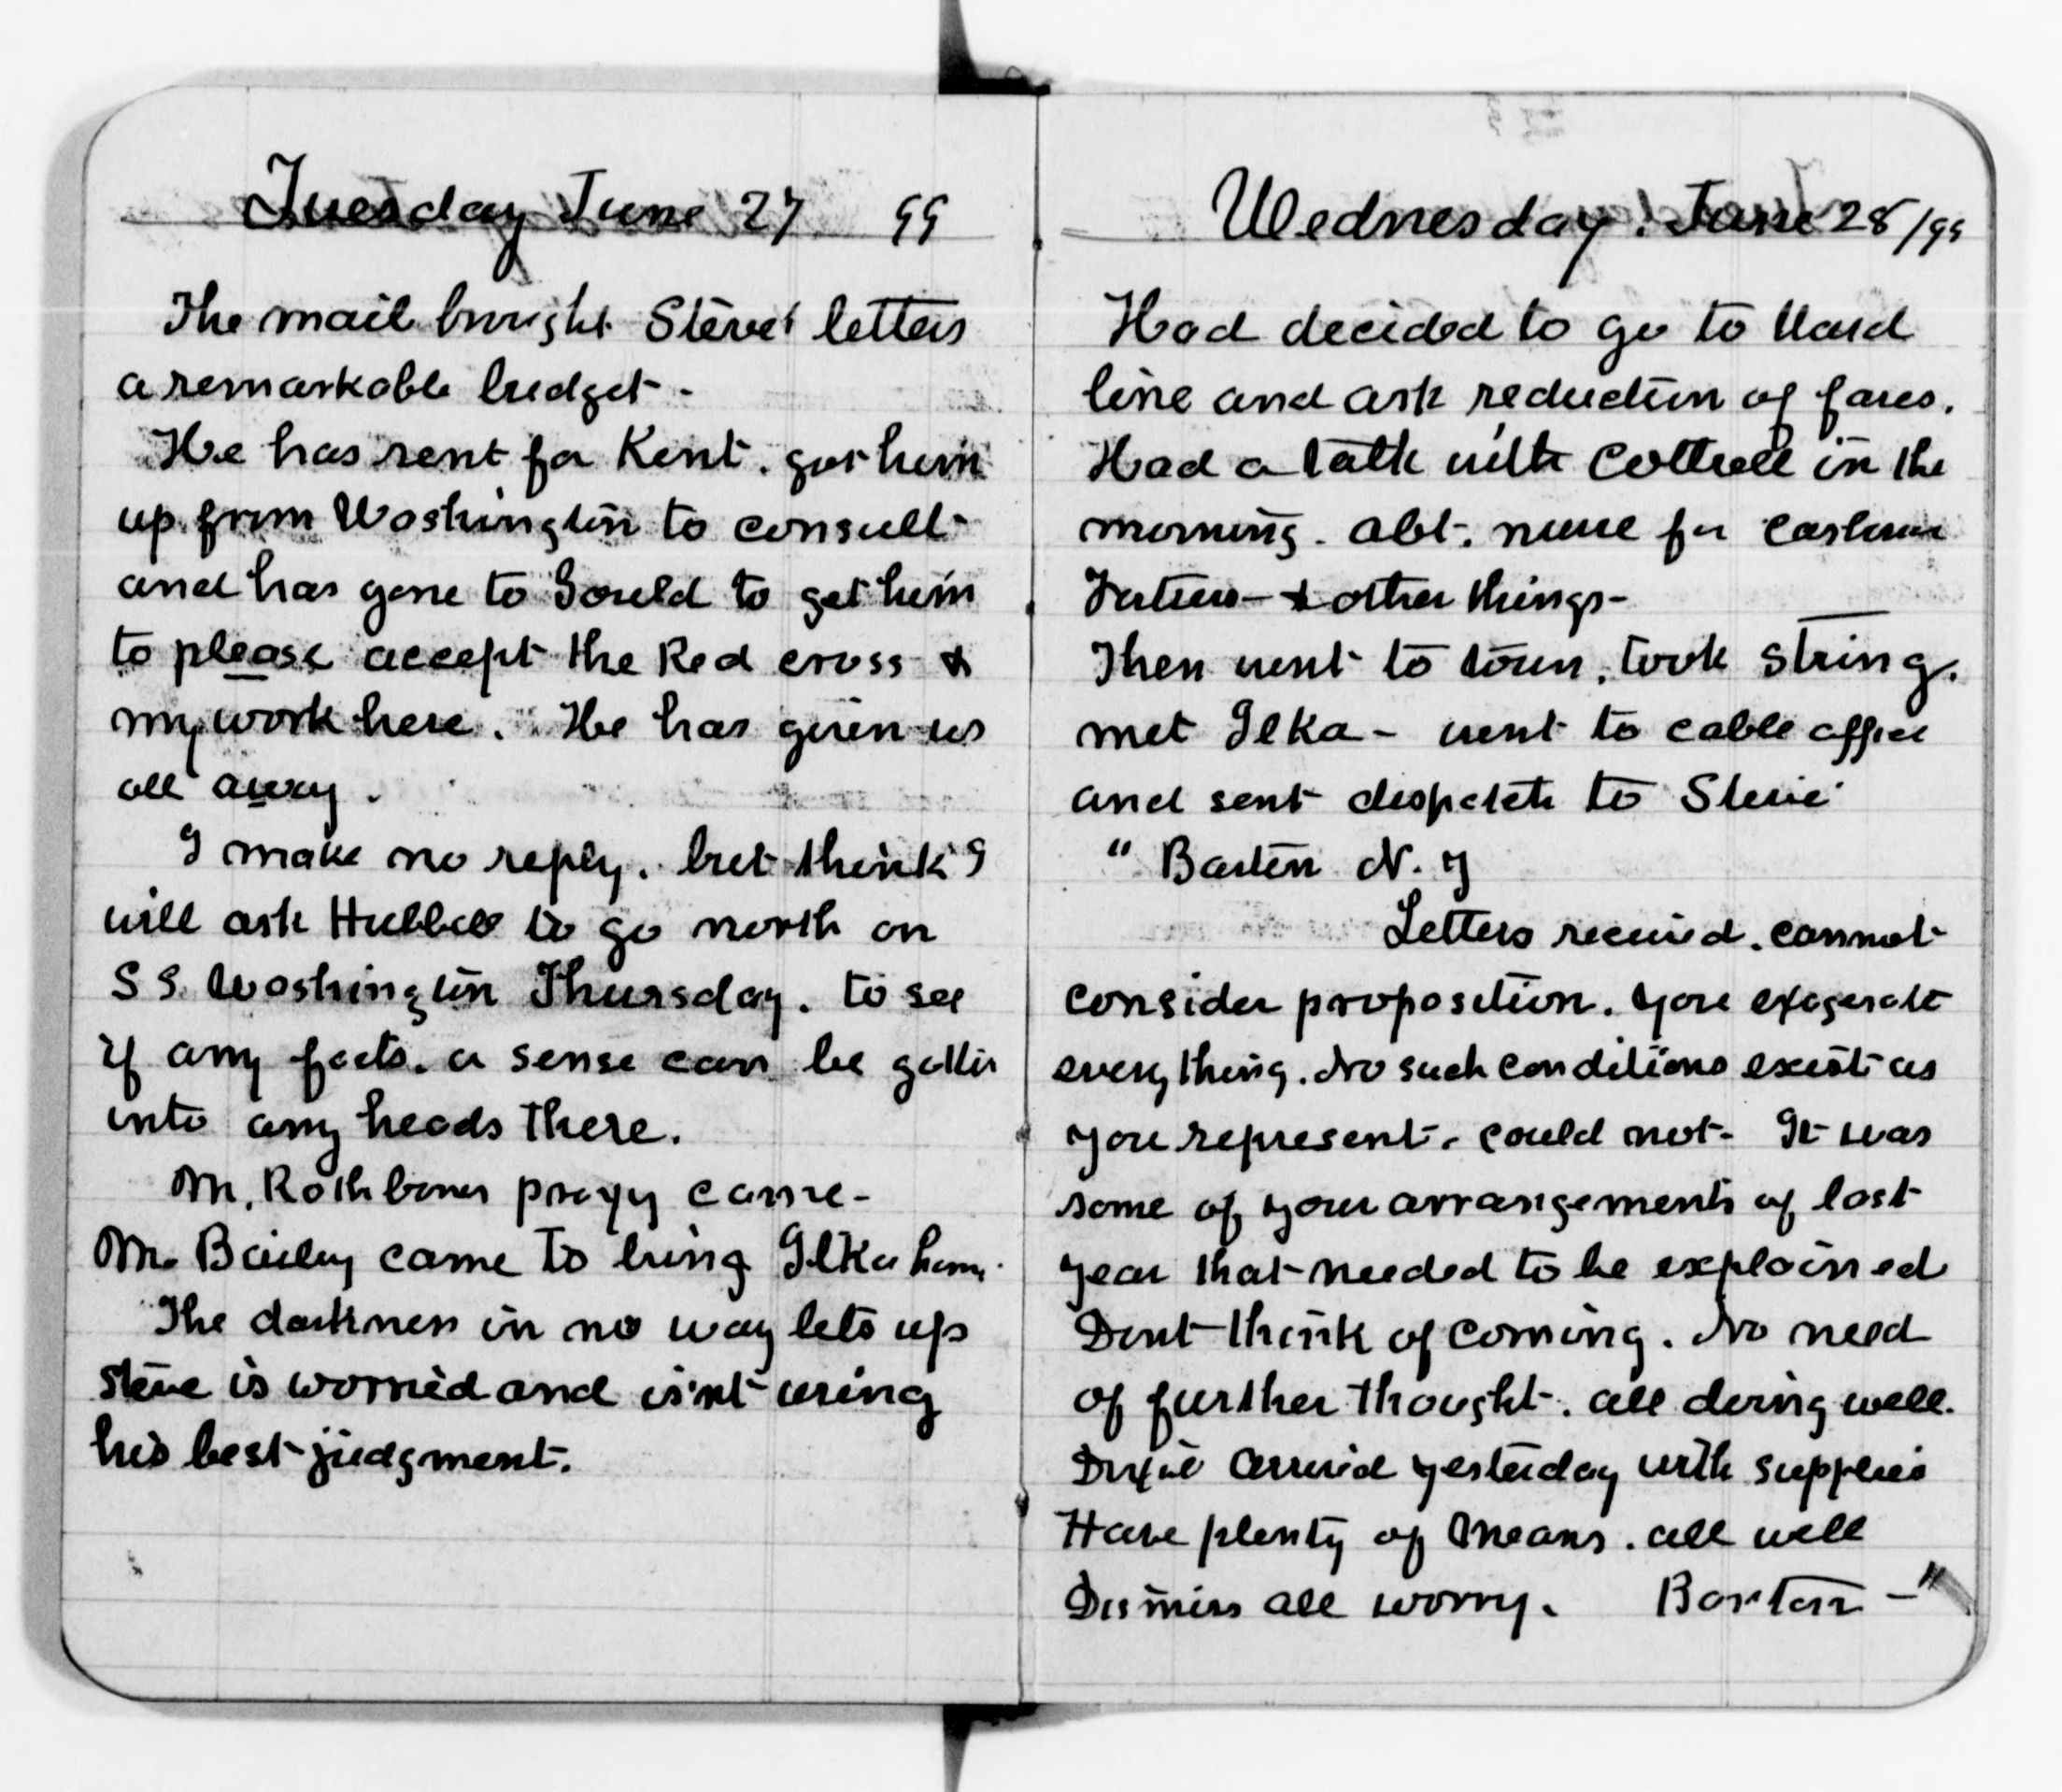 Tuesday June 27 99
The mail brought Steves letters
a remarkable budget -
He has sent for Kent. got him
up from Washington to consult
and has gone to Gould to get him
to please accept the Red cross &
my work here. He has given us
all away.
I make no reply. but think I
will ask Hubbell to go north on
S S. Washington Thursday. to see
if any facts. or sense can be gotten
into any heads there.
M. Rathbones proxy came -
Mr. Bailey came to bring Ilka home.
The darkness in no way lets up
Steve is worried and is'nt using
his best judgment.
Wednesday. June 28/99
Had decided to go to Ward
line and ask reduction of fares.
Had a talk with Cottrell in the
morning. abt. nurse for
& other things -
Then went to town. took string.
met Ilka - went to cable office
and sent dispatch to Stevie
" Barton N. Y
Letters received. cannot
consider proposition. you exagerate
every thing. No such conditions exist as
you represent. could not - It was
some of your arrangements of last
year that needed to be explained
Dont think of coming. No need
of further thought. all doing well.
Dixie arrived yesterday with supplies
Have plenty of means. all well
Dismiss all worry. Barton - "